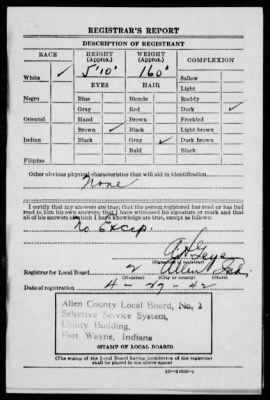 REGISTRAR'S REPORT
DESCRIPTION OF REGISTRANT
RACE HEIGHT (Approx.) WEIGHT (Approx.) COMPLEXION
White ✓ 5'10" 160# Sallow
EYES HAIR Light
Negro Blue Blonde Ruddy
Gray Red Dark ✓
Oriental Hazel Brown Freckled
Brown ✓ Black Light brown
Indian Black Gray ✓ Dark brown
Bald Black
Filipino
Other obvious physical characteristics that will aid in identification
None
I certify that my answers are true; that the person registered has read or has had
read to him his own answers; that I have witnessed his signature or mark and that
all of his answers of which I have knowledge are true, except as follows:
No Excep.
(Signature of registrar)
Registrar for Local Board 2 Allen Ind.
(Number) (City or county) (State)
Date of registration 4-29-42
Allen County Local Board, No. 2
Selective Service System,
Utility Building,
Fort Wayne, Indiana
(STAMP OF LOCAL BOARD)
(The stamp of the Local Board having jurisdiction of the registrant
shall be placed in the above space)